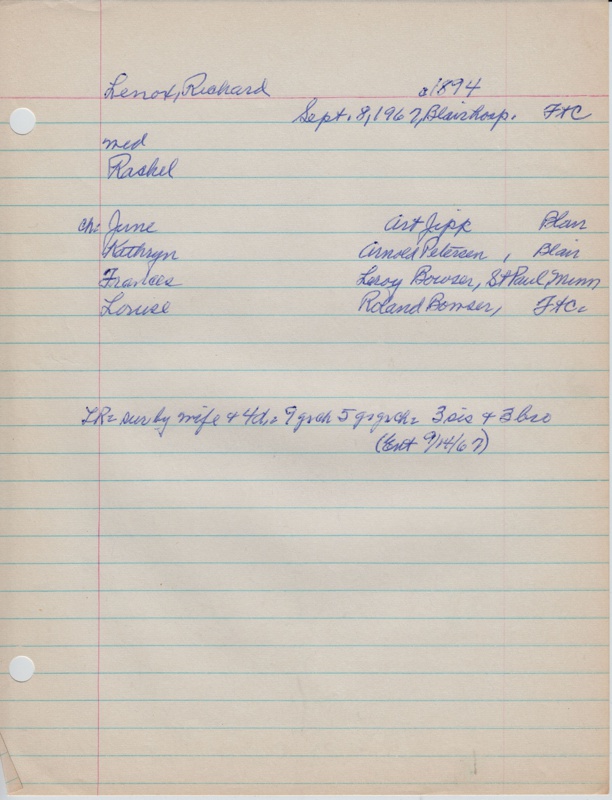 Lenox, Richard a1894
Sept. 8, 1967, Blair hosp. FtC
med
Rachel
ch: June Art Jipp Blair
Kathryn Arnold Petersen, Blair
Frances Leroy Bowser, St Paul, Minn
Louise Roland Bowser, FtC.
LR= sur by wife & 4d. 9 grch 5 gr grch= 3 sis & 3 bro
(Ent 9/14/67)